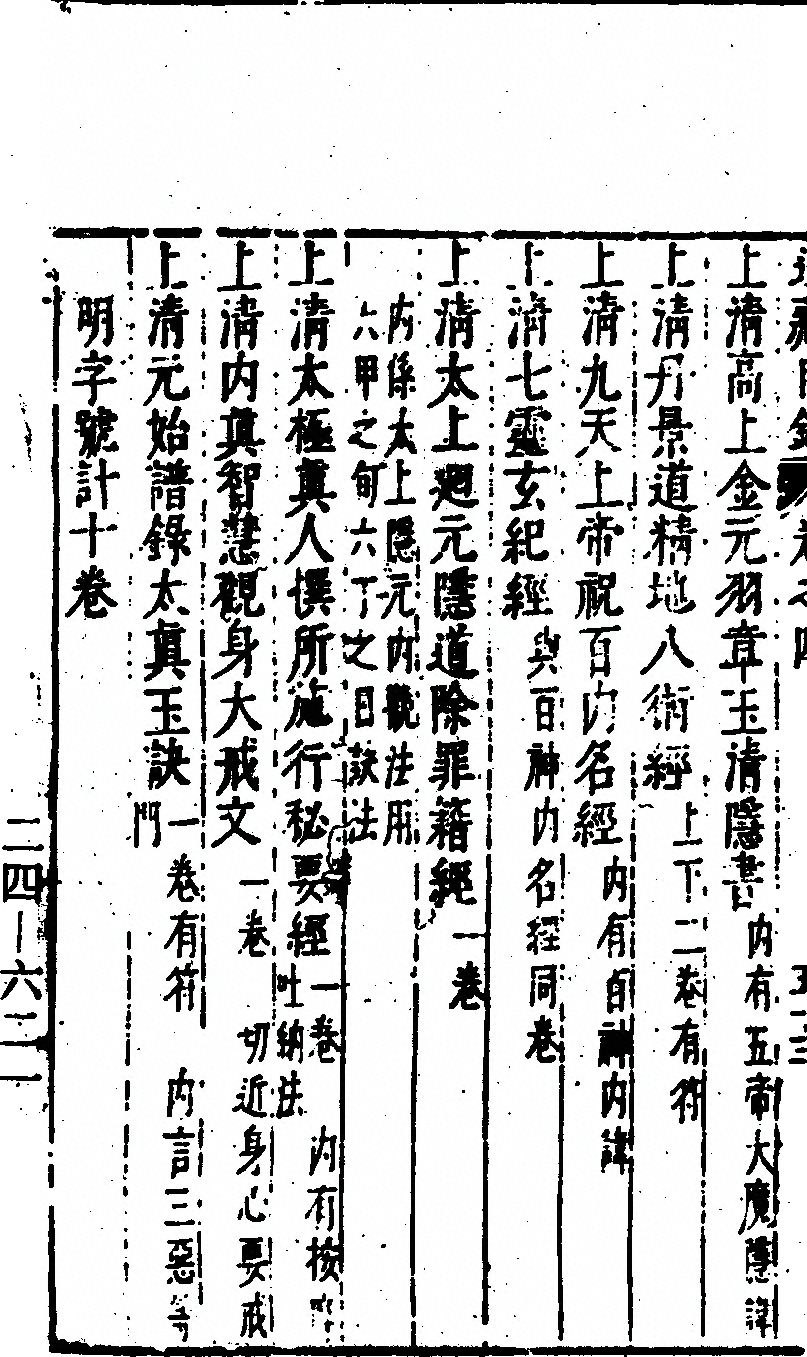 上清高上金元羽章玉清隱書 内有五帝大魔隱諱
上清丹景道精地八術經 上下二卷有符
上清九天上帝祝百内名經 内有百神内諱
上清七靈玄紀經 與百神内名經同卷
上清太上廻元隱道除罪籍經 一卷
内係太上隱元内觀法用
六甲之旬六丁之日䤋法
上清太極真人撰所施行秘要經 一卷 内有按
吐納法
上清内真智慧觀身大戒文 一卷 切近身心要戒
上清元始譜錄太真玉訣 一卷有符 内言三惡等
門
明字號計十卷
二四—六二一